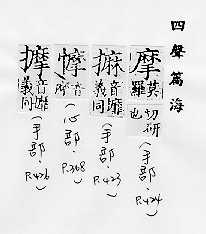 四聲篇海
摩 莫羅切研也
(手部.P.424)
𢳀 音靡義同
(手部.P.423)
(心部.P.368)
擵 音靡義同
(手部.P.426)